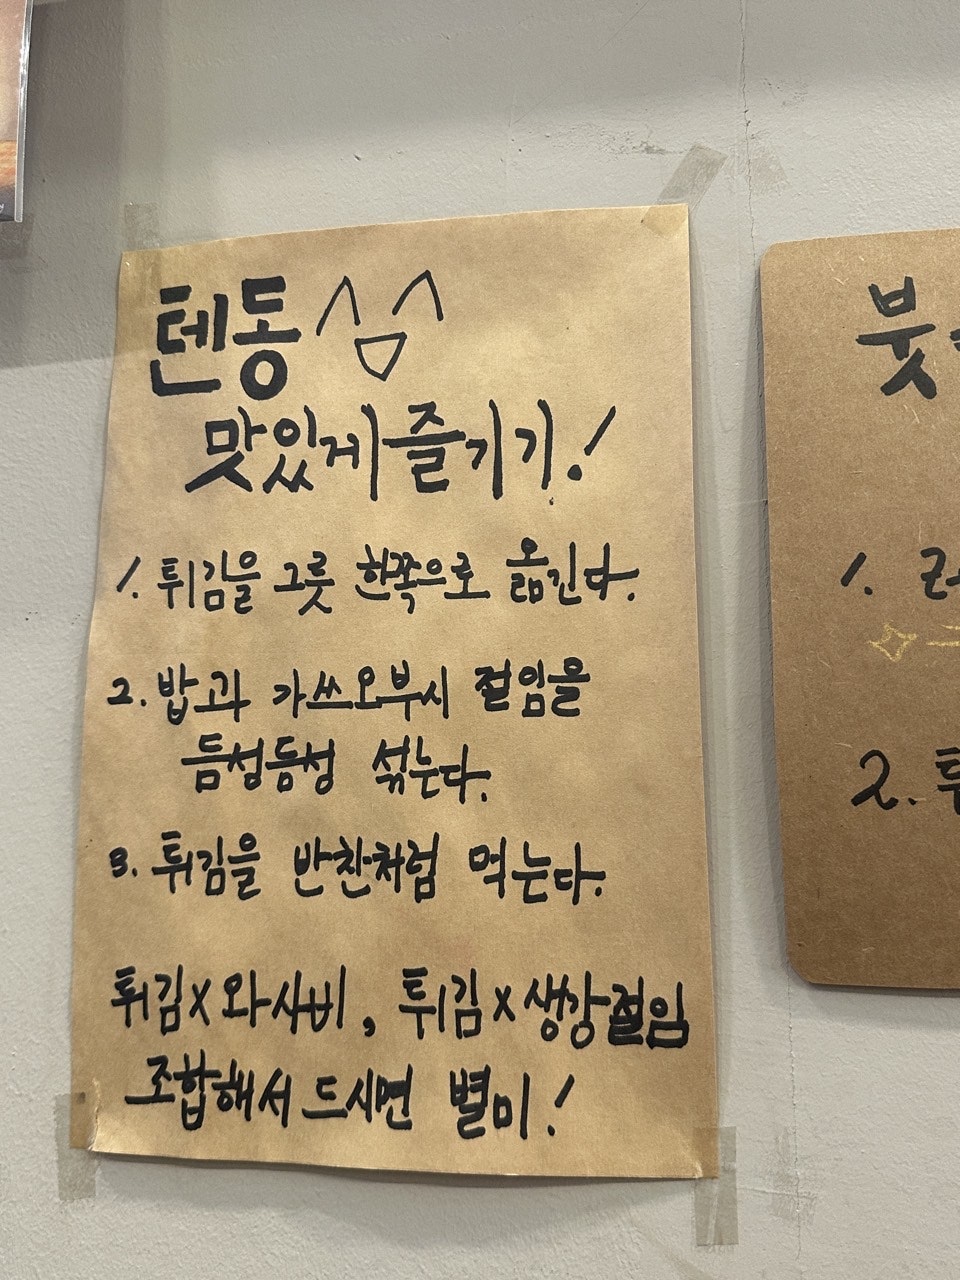 텐동
맛있게 즐기기!
1. 튀김을 그릇 한쪽으로 옮긴다.
2. 밥과 가쓰오부시 절임을
듬성듬성 섞는다.
3. 튀김을 반찬처럼 먹는다.
튀김x와사비, 튀김x생강절임
조합해서 드시면 별미!
붓
1.
2. 튀